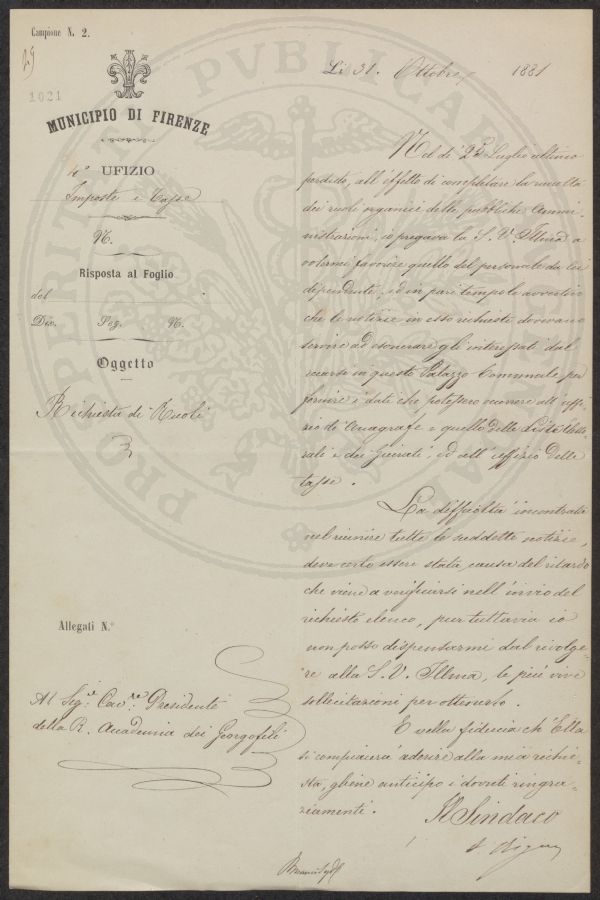 Campione N. 2.
1021
MUNICIPIO DI FIRENZE
4° UFIZIO
Imposte e Tasse
N.
Risposta al Foglio
del
Div. Seg. N.
Oggetto
Richiesta di Ruoli
Allegati N.°
Al Sig.e Cav.re Presidente
della R. Accademia dei Georgofili
Li 31. Ottobre 1881
Nel dì 25 Luglio ultimo
perduto, all'effetto di completare la raccolta
dei ruoli organici delle pubbliche Ammi-
nistrazioni, io pregava la S. V. Illma a
volermi favorire quello del personale da lei
dipendente, ed in pari tempo le avvertiva
che le notizie in esso richieste dovevano
servire ad esonerare gli interessati dal
recarsi in questo Palazzo Comunale, per
fornire i dati che potessero occorrere all'uffi-
zio di Anagrafe e quello delle Liste Eletto-
rali e dei Giurati, ed all'uffizio delle
tasse.
La difficoltà incontrata
nel riunire tutte le suddette notizie,
deve certo essere stata causa del ritardo
che viene a verificarsi nell'invio del
richiesto elenco, pur tuttavia io
non posso dispensarmi dal rivolge-
re alla S. V. Illma, le più vive
sollecitazioni per ottenerlo.
E nella fiducia ch'Ella
si compiacerà aderire alla mia richie-
sta, gliene anticipo i dovuti ringra-
ziamenti.
Il Sindaco
PRO PERITATI PVBLICAE